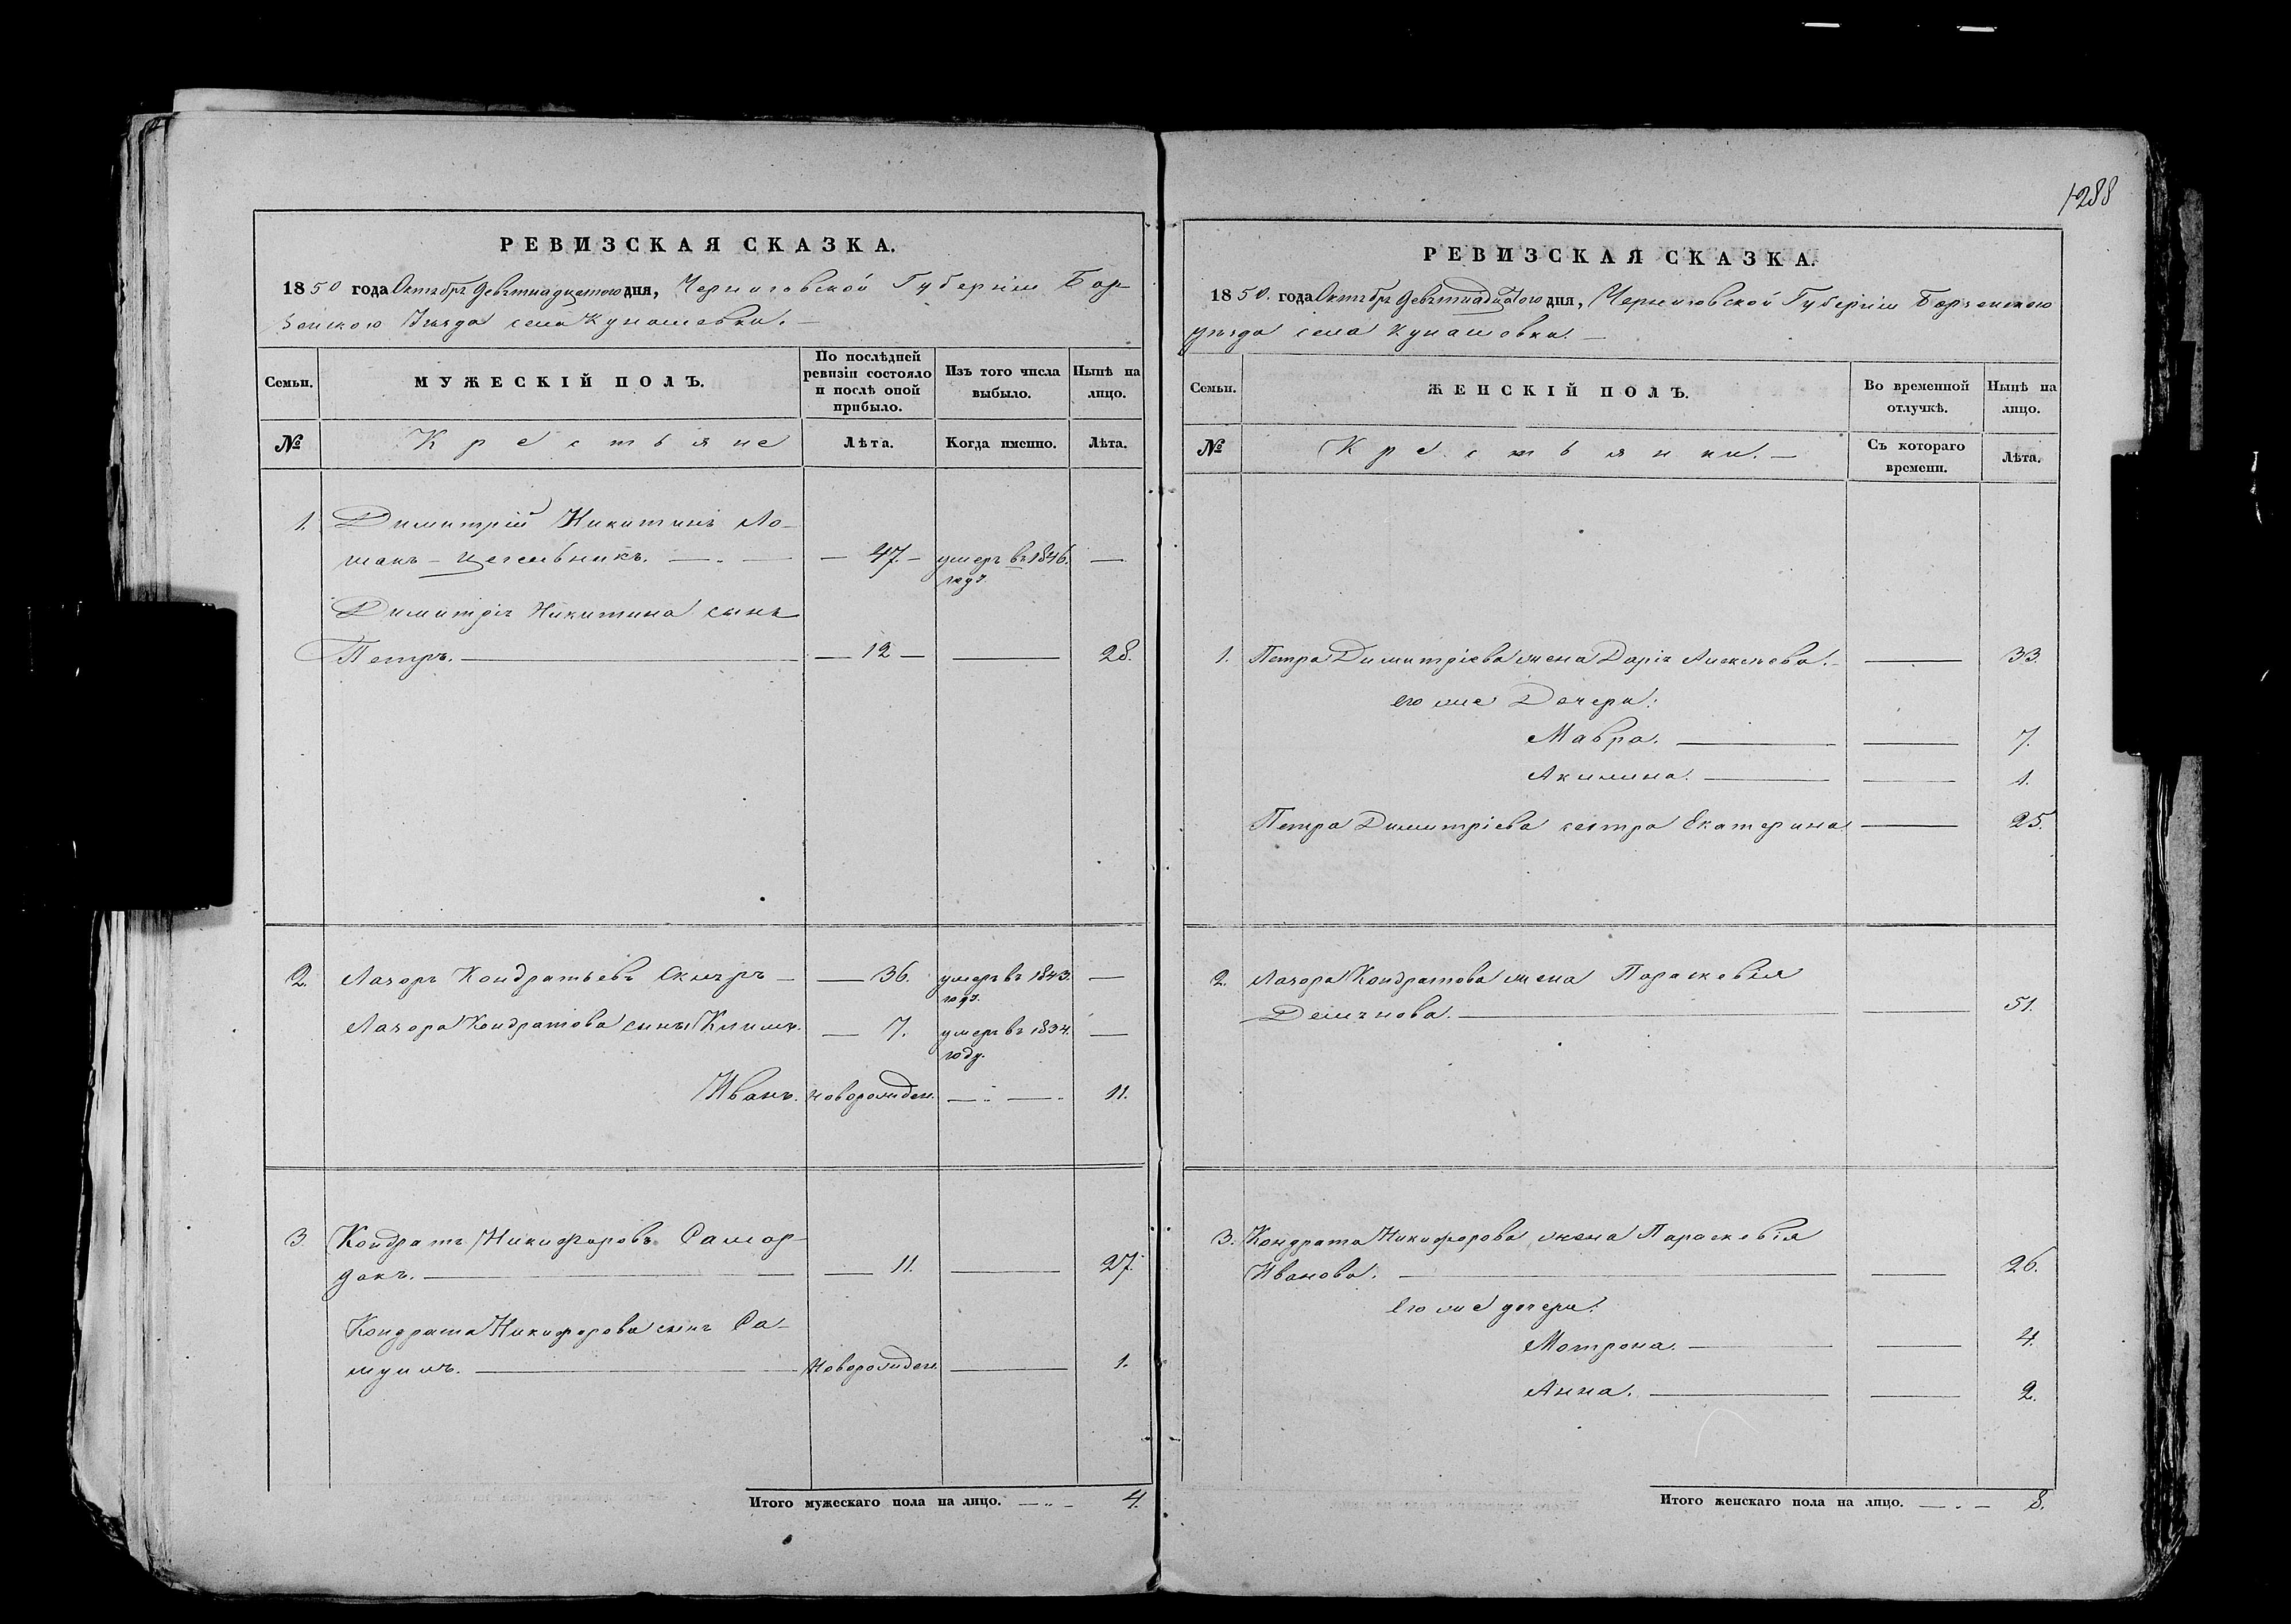 1288
РЕВИЗСКАЯ СКАЗКА.
1850 года Октября девятнадцатого дня, Черниговской Губерніи Бор-
зенского Уѣзда села Кунашовки. —
Семьи. МУЖЕСКІЙ ПОЛЪ. По послѣдней ревизіи состояло и послѣ оной прибыло. Изъ того числа выбыло. Нынѣ на лицо.
№ Крестьяне Лѣта. Когда именно. Лѣта.
1. Димитрій Никитинъ Ло-
шакъ — — 47. — умеръ въ 1846. —
году.
Димитрія Никитина сынъ
Петръ. — 12 — — 28.
2. Лазоръ Кондратьевъ — — 36. умеръ въ 1843. —
году.
Лазора Кондратова сынъ Климъ. — 7. умеръ въ 1834. —
году.
Иванъ. новорожден. — 11.
3 Кондратъ Никифоровъ Самор-
дакъ. — 11. — 27.
Кондрата Никифорова сынъ Са-
муилъ. — Новорожден. — 1.
Итого мужескаго пола на лицо. — 4.
РЕВИЗСКАЯ СКАЗКА.
1850. года Октября девятнадцатого дня, Черниговской Губерніи Борзенского
уѣзда села Кунашовки. —
Семьи. ЖЕНСКІЙ ПОЛЪ. Во временной отлучкѣ. Нынѣ на лицо.
№ Крестьянки. — Съ котораго времени. Лѣта.
1. Петра Димитріева жена Дарія Алексѣева. — — 33.
его же Дочери:
Мавра. — — 7.
Акилина. — — 1.
Петра Димитріева сестра Екатерина — 25.
2. Лазора Кондратова жена Параскевія
Демянова. — — 51.
3. Кондрата Никифорова жена Параскевія
Иванова. — — 26.
Его же дочери:
Мотрона. — — 4.
Анна. — — 2.
Итого женскаго пола на лицо. — 8.